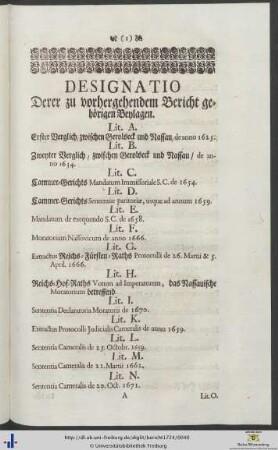 (1)
DESIGNATIO
Derer zu vorhergehendem Bericht ge-
hörigen Beylagen.
Lit. A.
Erster Verglich, zwischen Geroldseck und Nassau, de anno 1625.
Lit. B.
Zweyter Verglich, zwischen Geroldseck und Nassau / de an-
no 1634.
Lit. C.
Cammer-Gerichts Mandatum Immissoriale S. C. de 1654.
Lit. D.
Cammer-Gerichts Sententiæ paritoriæ, usque ad annum 1659.
Lit. E.
Mandatum de exequendo S. C. de 1658.
Lit. F.
Moratorium Nassovicum de anno 1666.
Lit. G.
Extractus Reichs-Fürsten-Raths Protocolli de 26. Martii & 5.
April. 1666.
Lit. H.
Reichs-Hof-Raths Votum ad Imperatorem, das Nassauische
Moratorium betreffend.
Lit. I.
Sententia Declaratoria Moratorii de 1670.
Lit. K.
Extractus Protocolli Judicialis Cameralis de anno 1659.
Lit. L.
Sententia Cameralis de 25. Octobr. 1659.
Lit. M.
Sententia Cameralis de 21. Martii 1662.
Lit. N.
Sententia Cameralis de 20. Oct. 1671.
A
Lit. O.